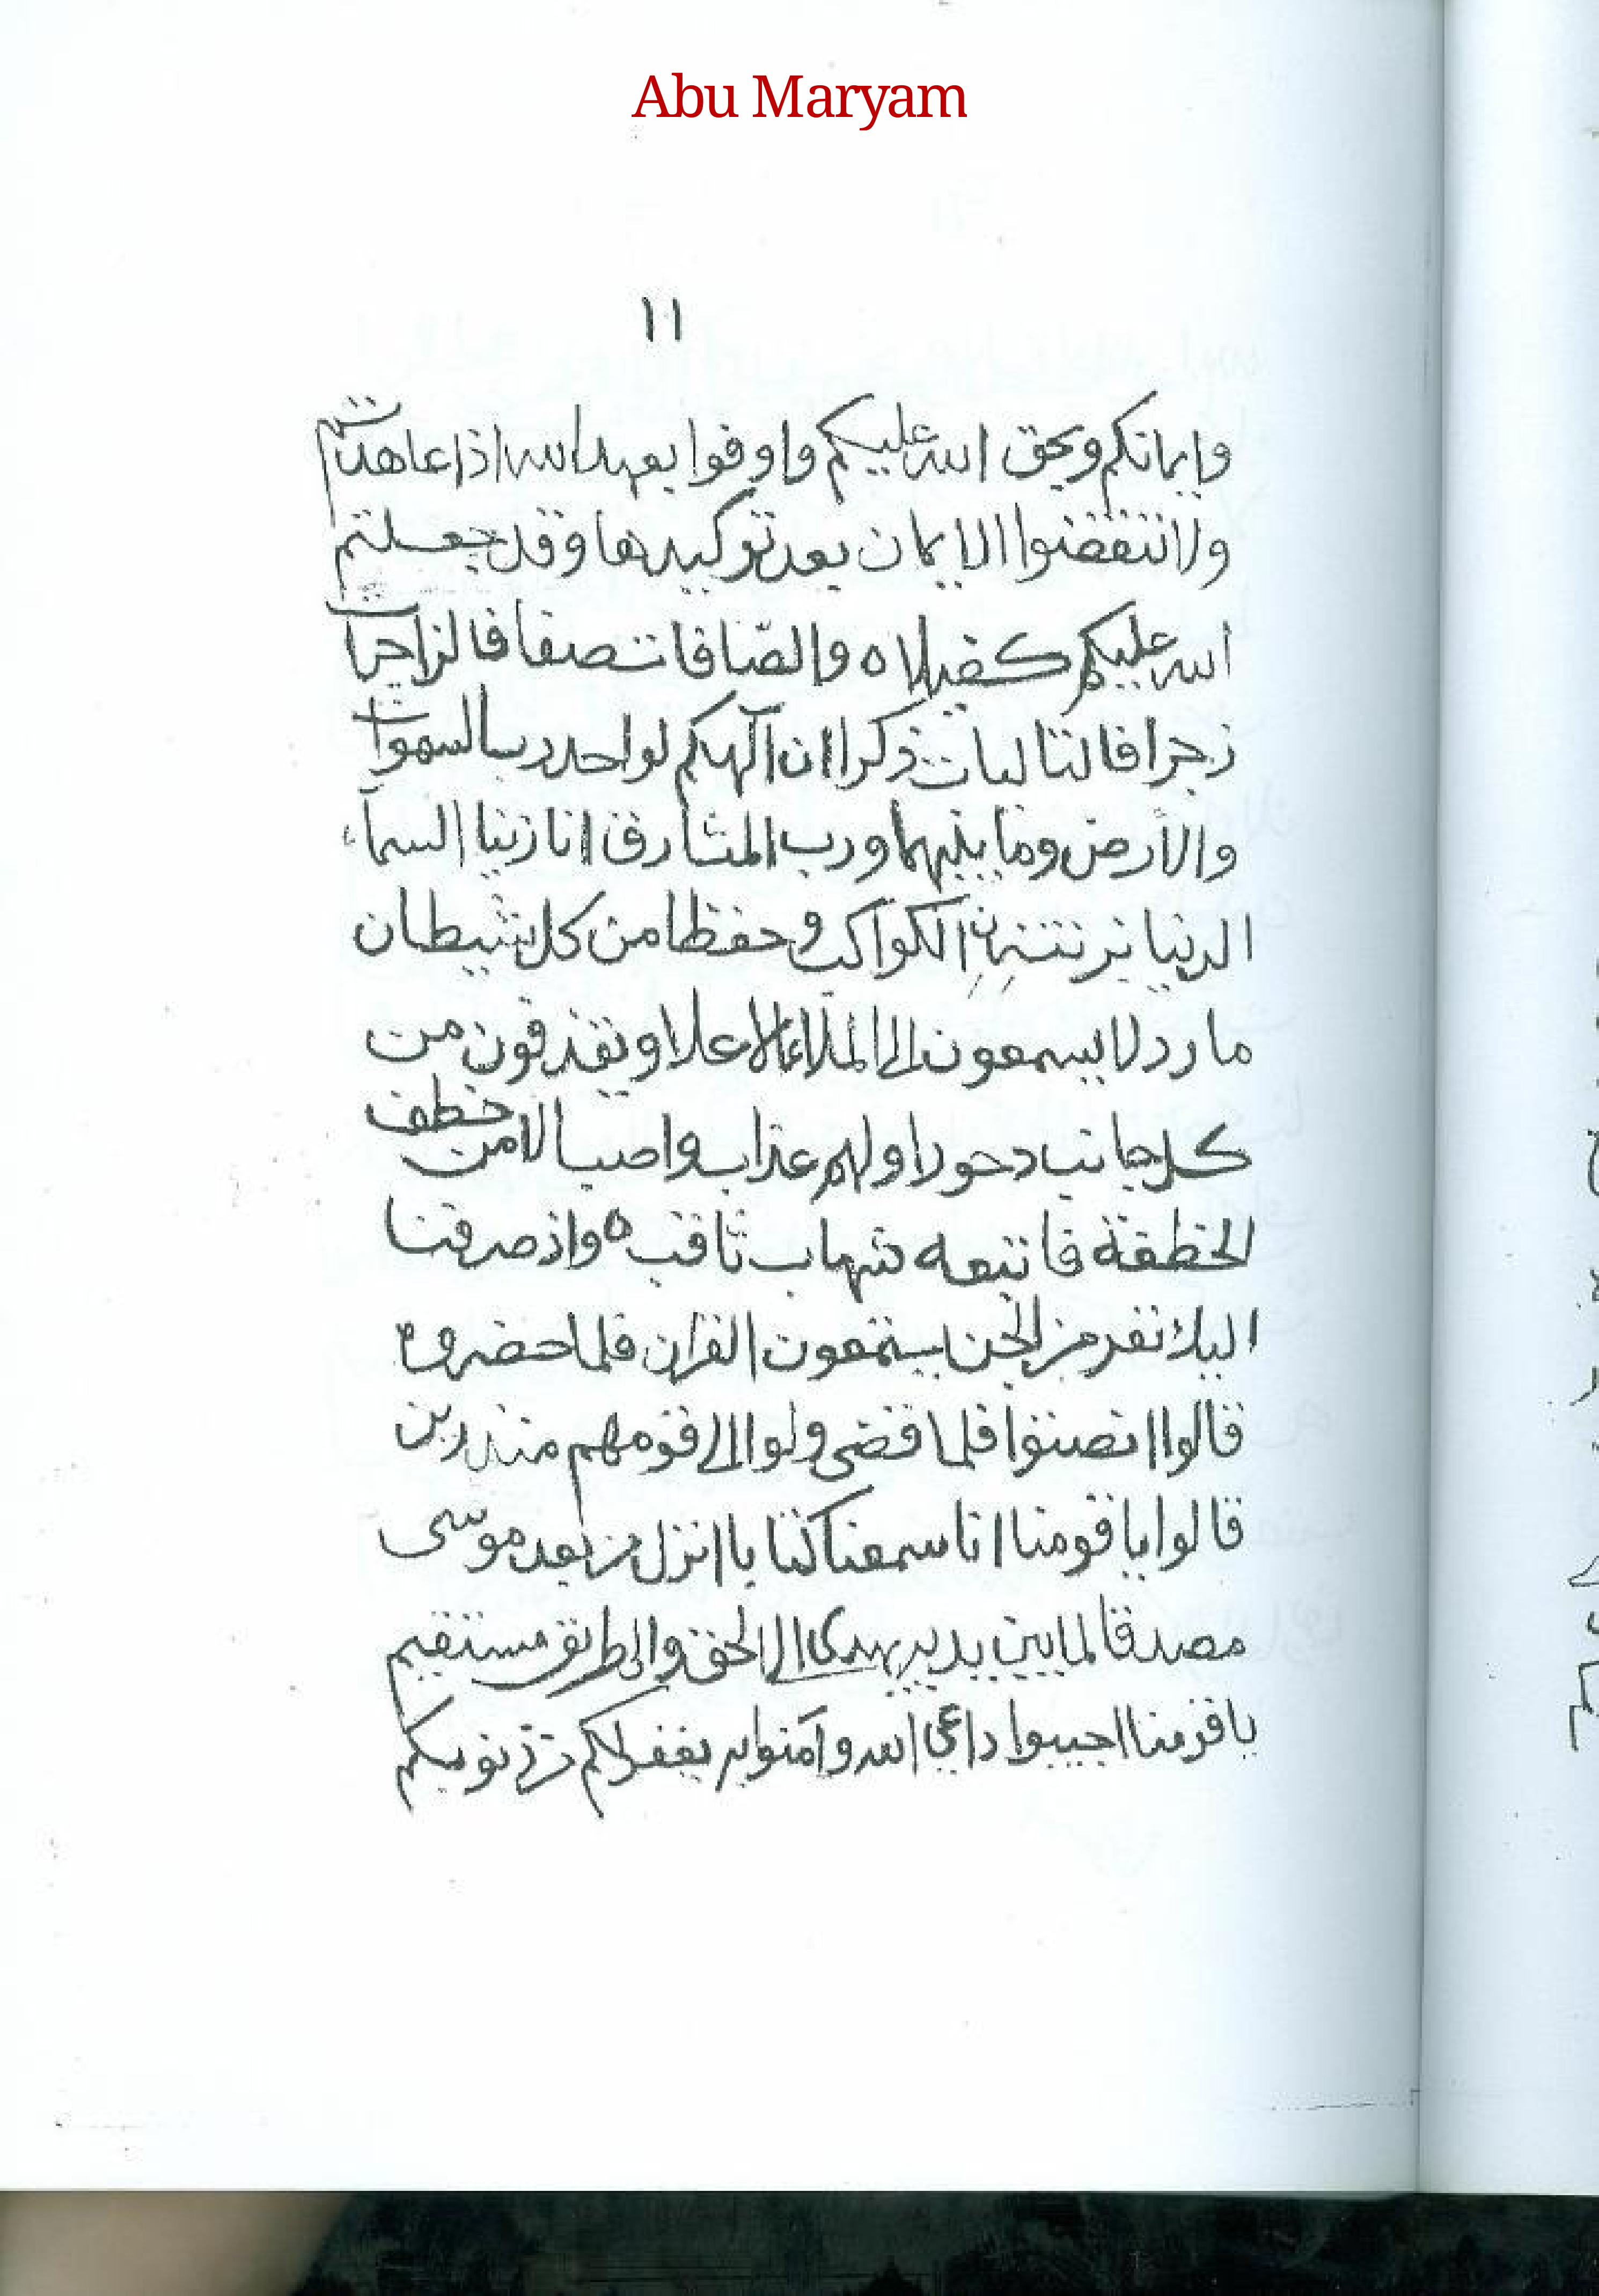 Abu Maryam
١١
وايمانكم وبحق الله عليكم واوفوا بعهد الله اذا عاهدتم
ولا تنقضوا الايمان بعد توكيدها وقد جعلتم
الله عليكم كفيلا ه والصّافات صفا فالزاجرات
زجرا فالتاليات ذكرا ان آلهكم لواحد رب السموات
والأرض وما بينهما ورب المشارق انا زينا السمآء
الدنيا بزينة الكواكب وحفظا من كل شيطان
مارد لا يسمعون الى الملاء الاعلا ويقذفون من
كل جانب دحورا ولهم عذاب واصب الا من خطف
الخطفة فاتبعه شهاب ثاقب ه واذ صرفنا
اليك نفر من الجن يستمعون القران فلما حضروه
قالوا انصتوا فلما قضى ولوا الى قومهم منذرين
قالوا يا قومنا انا سمعنا كتابا انزل من بعد موسى
مصدقا لما بين يديه يهدى الى الحق والى طريق مستقيم
يا قومنا اجيبوا داعي الله وآمنوا به يغفر لكم من ذنوبكم